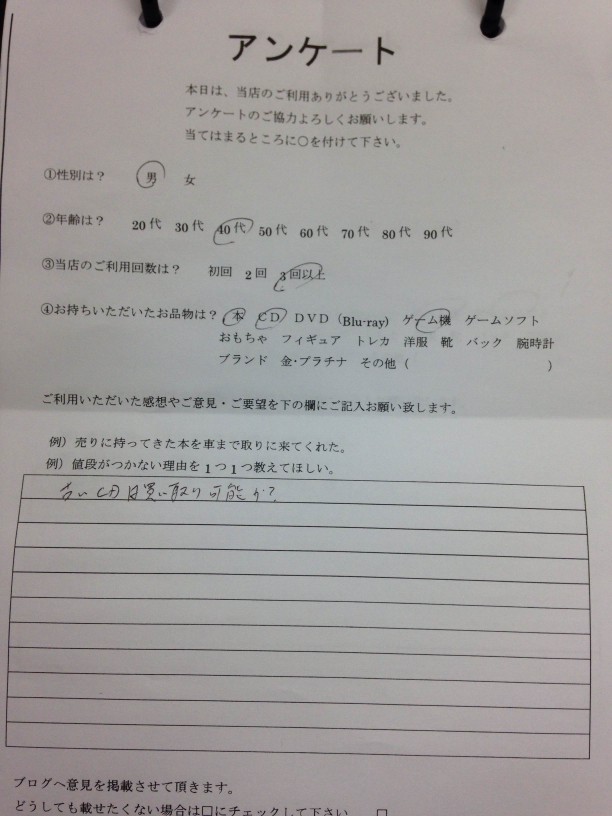 アンケート
本日は、当店のご利用ありがとうございました。
アンケートのご協力よろしくお願いします。
当てはまるところに○を付けて下さい。
①性別は？ 男 女
②年齢は？ 20代 30代 40代 50代 60代 70代 80代 90代
③当店のご利用回数は？ 初回 2回 3回以上
④お持ちいただいたお品物は？ 本 CD DVD（Blu-ray） ゲーム機 ゲームソフト
おもちゃ フィギュア トレカ 洋服 靴 バック 腕時計
ブランド 金･プラチナ その他（ ）
ご利用いただいた感想やご意見・ご要望を下の欄にご記入お願い致します。
例）売りに持ってきた本を車まで取りに来てくれた。
例）値段がつかない理由を1つ1つ教えてほしい。
古いCDは買い取り可能か？
ブログへ意見を掲載させて頂きます。
どうしても載せたくない場合は□にチェックして下さい。 □